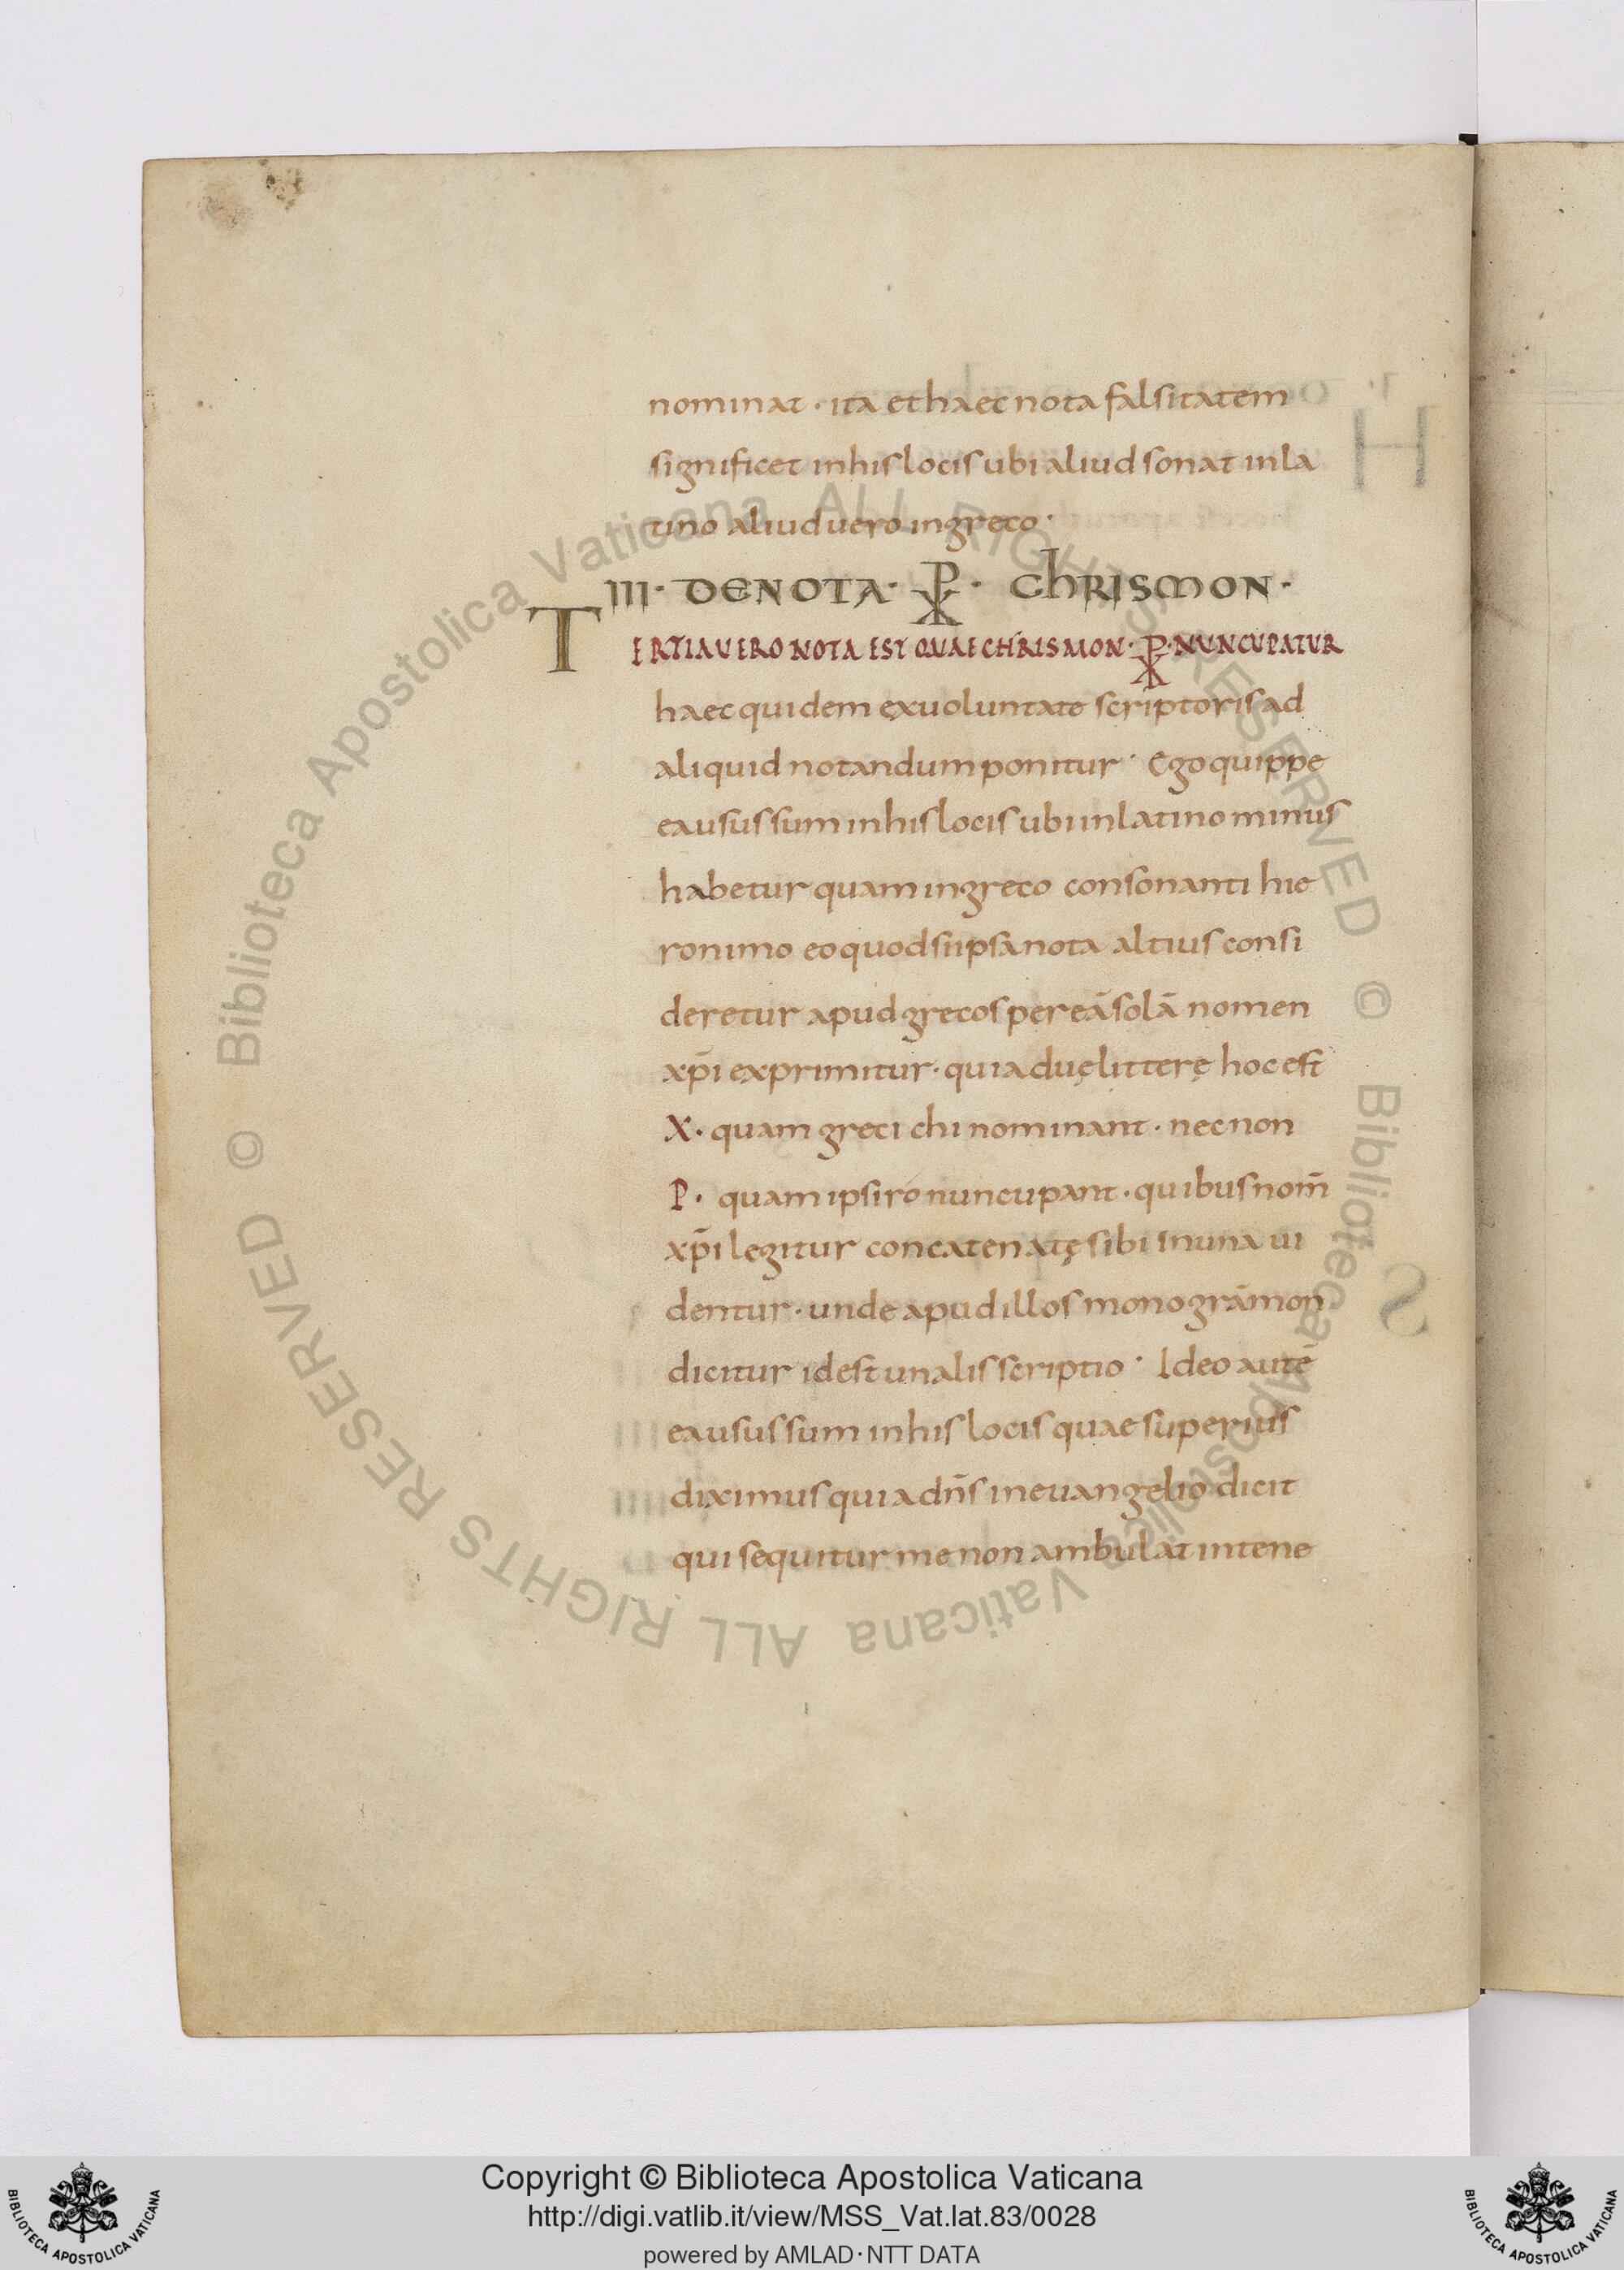 nominat · ita et haec nota falsitatem
significet inhis locis ubi aliud sonat inla
tino aliud uero ingreco ·
III · DENOTA · ⳩ · ChRISMON ·
TERTIA UERO NOTA EST QUAE CHRISMON · ⳩ · NUNCUPATUR
haec quidem exuoluntate scriptoris ad
aliquid notandum ponitur · Ego quippe
ea usus sum inhis locis ubi inlatino minus
habetur quam ingreco consonanti hie
ronimo eo quod si ipsa nota altius consi
deretur apud grecos per eā solā nomen
xp̄i exprimitur · quia duę litterę hoc est
X · quam greci chi nominant · nec non
P · quam ipsi ro nuncupant · quibus nom̄
xp̄i legitur concatenatę sibi inuna ui
dentur · unde apud illos monogrāmon
dicitur id est unalis scriptio · Ideo autē
ea usus sum inhis locis quae superius
diximus quia dn̄s in euangelio dicit
qui sequitur me non ambulat intene
© Biblioteca Apostolica Vaticana ALL RIGHTS RESERVED
© Biblioteca Apostolica Vaticana ALL RIGHTS RESERVED
Copyright © Biblioteca Apostolica Vaticana
http://digi.vatlib.it/view/MSS_Vat.lat.83/0028
powered by AMLAD·NTT DATA
BIBLIOTECA APOSTOLICA VATICANA
BIBLIOTECA APOSTOLICA VATICANA